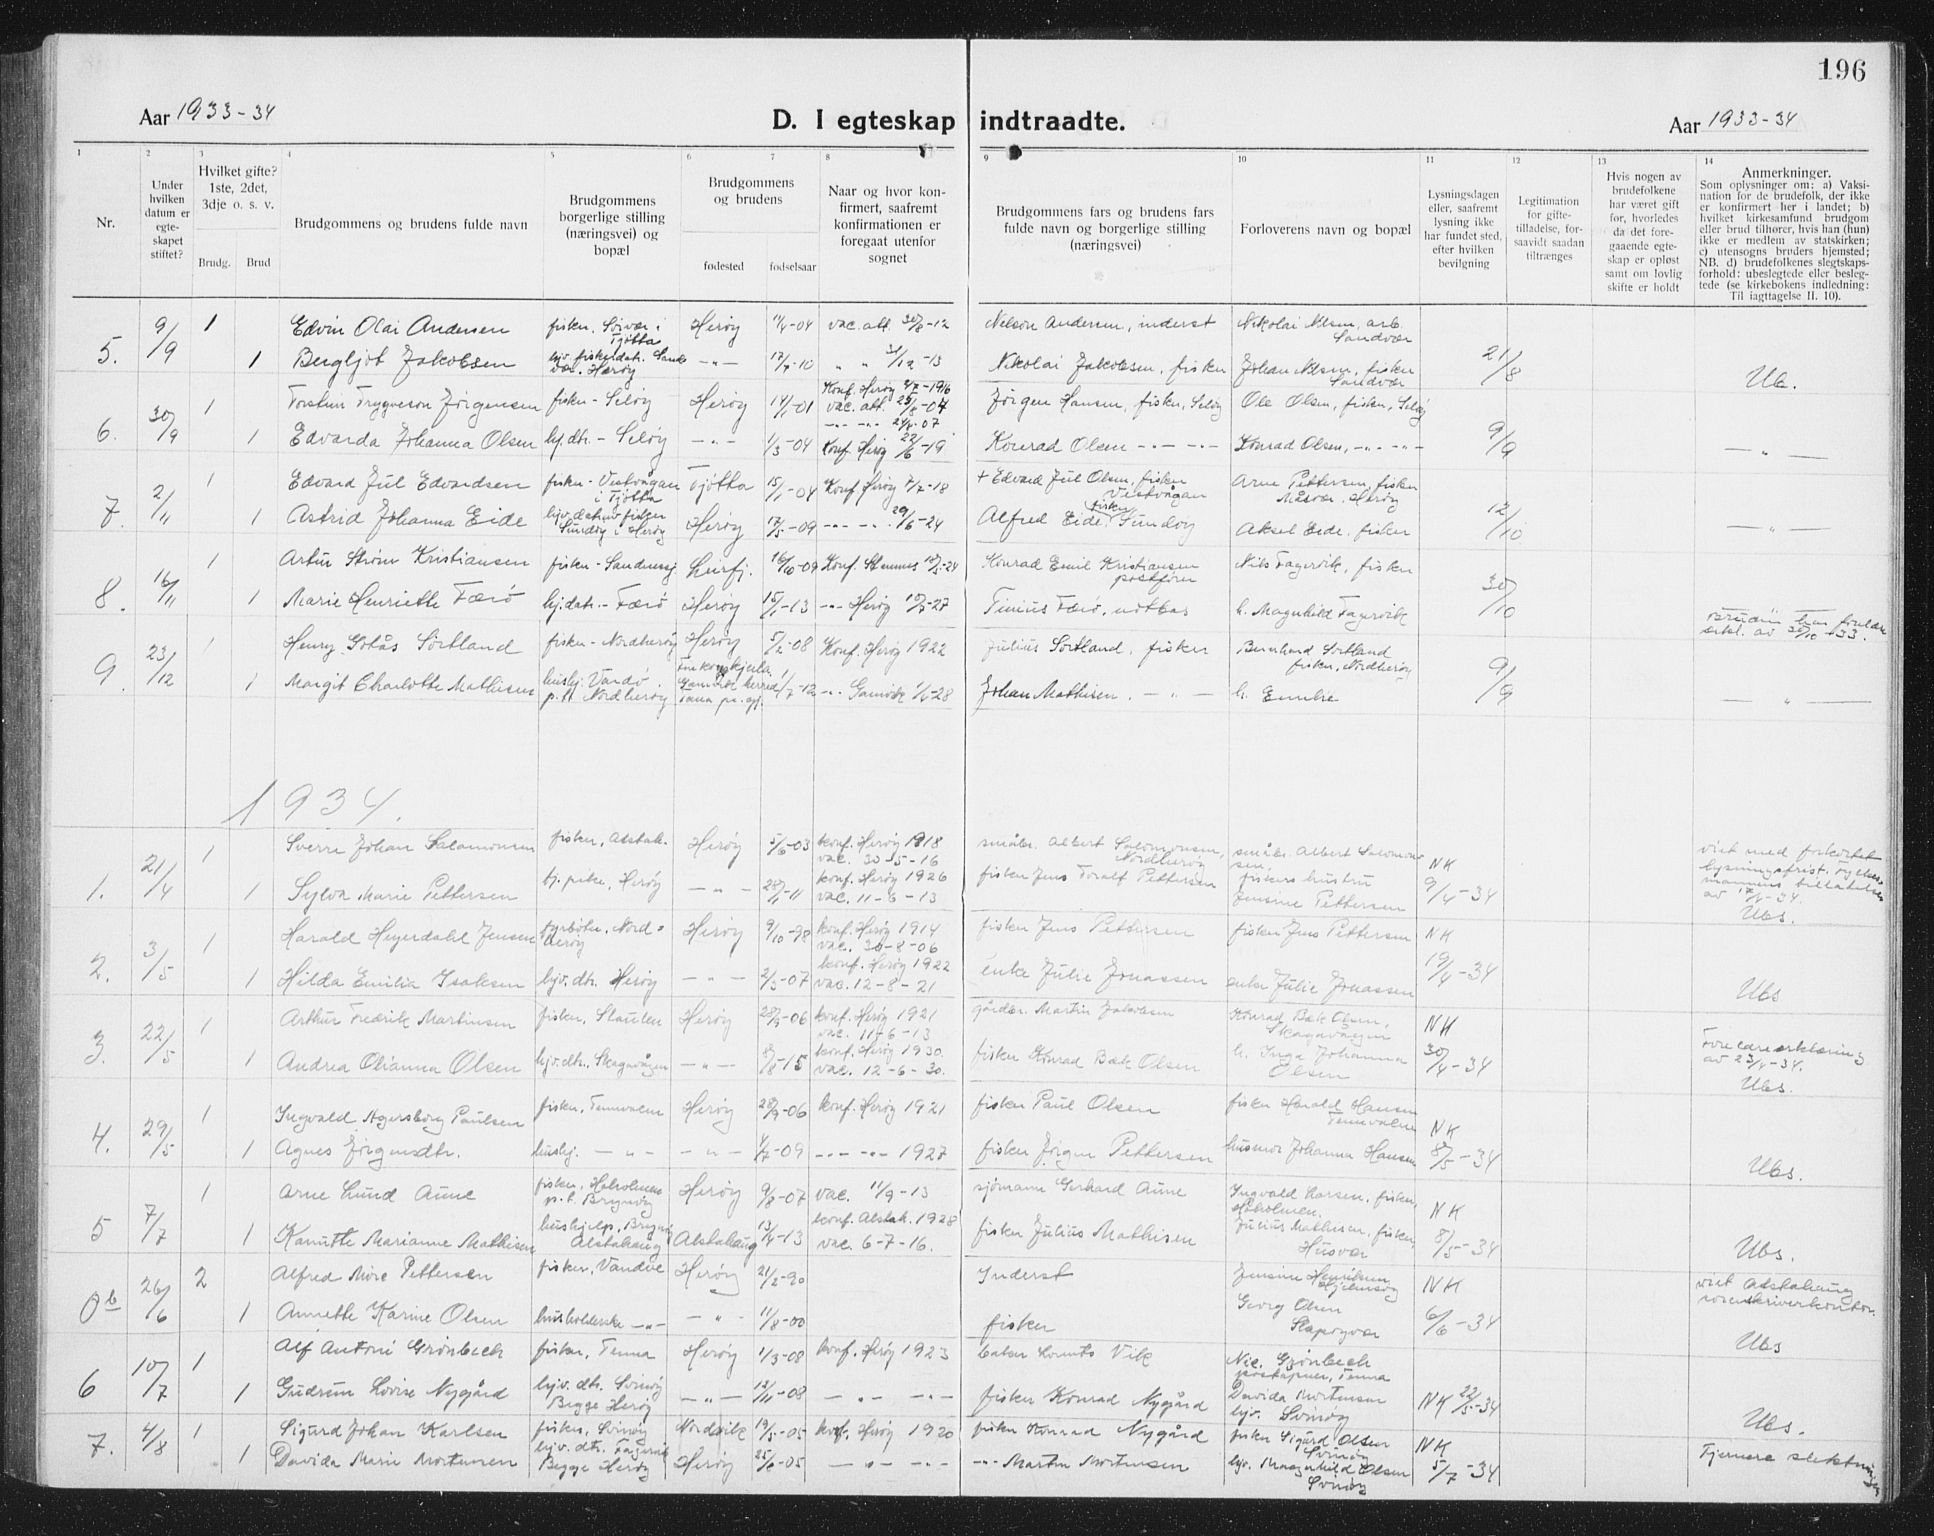 196
Aar 1933-34
D. I egteskap indtraadte.
Aar 1933-34
1
2
3
4
5
6
7
8
9
10
11
12
13
14
Nr.
Under
hvilken
datum er
egte-
skapet
stiftet?
Hvilket gifte?
1ste, 2det,
3dje o. s. v.
Brudg.
Brud
Brudgommens og brudens fulde navn
Brudgommens
borgerlige stilling
(næringsvei) og
bopæl
Brudgommens
og brudens
fødested
fødselsaar
Naar og hvor kon-
firmert, saafremt
konfirmationen er
foregaat utenfor
sognet
Brudgommens fars og brudens fars
fulde navn og borgerlige stilling
(næringsvei)
Forloverens navn og bopæl
Lysningsdagen
eller, saafremt
lysning ikke
har fundet sted,
efter hvilken
bevilgning
Legitimation
for gifte-
tilladelse, for-
saavidt saadan
tiltrænges
Hvis nogen av
brudefolkene
har været gift
før, hvorledes
da det fore-
gaaende egte-
skap er opløst
samt om lovlig
skifte er holdt
Anmerkninger.
Som oplysninger om: a) Vaksi-
nation for de brudefolk, der ikke
er konfirmert her i landet; b)
hvilket kirkesamfund brudgom
eller brud tilhører, hvis han (hun)
ikke er medlem av statskirken;
c) utensogns bruders hjemsted;
NB. d) brudefolkenes slegtskaps-
forhold: ubeslegtede eller besleg-
tede (se kirkebokens indledning:
Til iagttagelse II. 10).
5. 9/9 1 Edvin Olai Andersen fisker, Sørvær i Tjøtta Herøy 11/4-04 vac. att. 30/8-12 Nelson Andersen, inderst Nikolai Nilsen, arb. Sandvær
1 Bergljot Jakobsen hjv. fiskerdat. Sandvær. Herøy -"- 17/7-10 " " 31/12-13 Nikolai Jakobsen, fisker Johan Nilsen, fisker Sandvær 21/8 Ub.
6. 30/9 1 Torstein Trygveson Jørgensen fisker - Seløy Herøy 14/1-01 Konf. Herøy 2/7-1916 vac. att. 25/8-04 Jørgen Hansen, fisker, Seløy Ole Olsen, fisker, Seløy
1 Edvarda Johanna Olsen hj. dtr. - Seløy -"- 1/3-04 -"- -"- 24/8-07 Konf. Herøy 22/6-19 Konrad Olsen -"- -"- Konrad Olsen, -"- -"- 9/9 -"-
7. 2/11 1 Edvard Jul Edvardsen fisker - Vestvågan i Tjøtta Tjøtta 15/1-04 Konf. Herøy 7/7-18 + Edvard Jul Olsen, fisker Vestvågan Arne Pettersen, fisker Måsvær, Herøy
1 Astrid Johanna Eide hjv. datr. av fisker Sundøy i Herøy Herøy 17/5-09 -"- -"- 29/6-24 Alfred Eide, fisker Sundøy Aksel Eide, fisker 12/10 -"-
8. 16/11 1 Artur Strøm Kristiansen fisker - Sandnessj. Leirfj. 16/10-09 Konf. Stamnes Konrad Emil Kristiansen postfører Nils Fagervik, fisker
1 Marie Henriette Færø hj. datr. - Færø Herøy 15/1-13 -"- Herøy Tinius Færø, notbas h. Magnhild Fagervik 30/10 Bruden har foreldr. erkl. av 30/10-33.
9. 23/12 1 Henry Gotås Sørtland fisker - Nordherøy Herøy 5/2-08 Konf. Herøy 1922 Julius Sørtland, fisker Bernhard Sørtland fisker, Nordherøy
1 Margit Charlotte Mathisen hushj. Vardø p.t. Nordherøy Finkongkjeila Gamvik herred Tana pr. gj. 1/7-12 -"- Gamvik 1/7-28 Johan Mathisen, -"- h. Emilie 9/9 -"-
1934.
1. 21/4 1 Sverre Johan Salamonsen fisker, Alstah. Herøy 5/6-03 konf. Herøy 1918 vac. 30-5-16 småbr. Albert Salomonsen, Nordherøy småbr. Albert Salomonsen NK
1 Sylva Marie Pettersen tj. pike, Herøy -"- 28/1-11 konf. Herøy 1926 vac. 11-6-13 fisker Jens Toralf Pettersen fiskers hustru Jensine Pettersen 9/4-34 viet med forkortet lysningsfrist. Sykemannens tillatelse av 17/4-34. Ubs.
2. 3/5 1 Harald Heyerdahl Jensen fyrbøter, Nordherøy Herøy 9/10-98 konf. Herøy 1914 vac. 30-8-06 fisker Jens Pettersen fisker Jens Pettersen NK
1 Hilda Emilia Isaksen hjv. dtr. Herøy -"- 2/3-07 konf. Herøy 1922 vac. 12-8-21 enke Julie Jonassen enke Julie Jonassen 19/4-34 Ubs
3. 22/5 1 Arthur Fredrik Martinsen fisker, Staulen Herøy 28/9-06 konf. Herøy 1921 vac. 11-6-13 gårdbr. Martin Jakobsen Konrad Bæk Olsen, Skagavågen NK
1 Andrea Olianna Olsen hjv. dtr., Skagavågen -"- 8/8-15 konf. Herøy 1930. vac. 12-6-30. fisker Konrad Bæk Olsen h. Inga Johanna Olsen 30/4-34 Foreldreerklæring av 23/4-34. Ubs.
4. 29/5 1 Ingvald Agersborg Paulsen fisker, Tennvalen Herøy 28/9-06 konf. Herøy 1921 fisker Paul Olsen fisker Harald Hansen Tennvalen NK
1 Agnes Jørgensdtr. hushj. -"- -"- 4/7-09 -"- -"- 1927 fisker Jørgen Pettersen husmor Johanna Hansen 8/5-34 Ubs.
5 7/7 1 Arne Lund Aune fisker, Haholmen p.t. Brynøy Herøy 9/8-07 vac. 11/9-13 sjømann Gerhard Aune Ingvald Larsen, fisker, Haholmen. NK
1 Kanutte Marianne Mathisen hushjelp, Brynøy Alstahaug Alstahaug 13/4-13 konf. Alstah. 1928 vac. 6-7-16. fisker Julius Mathisen Julius Mathisen, fisker, Husvær 8/5-34 Ubs.
0b 26/6 2 Alfred More Pettersen fisker, Vandve Herøy 21/2-90 Inderst Jensine Henriksen Hjelmsøy NK viet Alstahaug sorenskriverkontor.
1 Annette Karine Olsen husholderske -"- -"- 11/8-00 fisker Georg Olsen Skarpøyvær 6/6-34 Ubs
6 10/7 1 Alf Antoni Grønbech fisker, Tenna Herøy 1/3-08 konf. Herøy 1923 baker Lorents Vik Nic. Grønbech poståpner, Tenna
1 Gudrun Lovise Nygård hjv. dtr. Svinøy Begge Herøy -"- 13/11-08 -"- -"- fisker Konrad Nygård Davida Mortensen hjv. Svinøy NK 22/5-34 Ubs.
7. 4/8 1 Sigurd Johan Karlsen fisker, Svinøy Nordvik 19/5-05 konf. Herøy 1920 fisker Konrad Nygård fisker Sigurd Olsen Svinøy NK
1 Davida Marie Mortensen hjv. dtr. Fagervik Begge Herøy Herøy 25/6-05 -"- -"- -"- Martin Mortensen hjv. Magnhild Olsen Svinøy 5/7-34 Fjernere slektninger